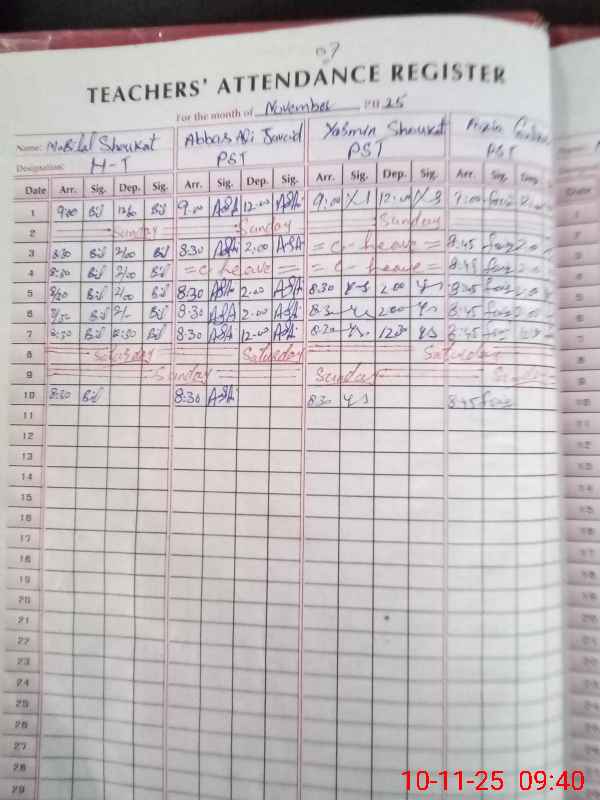 07
TEACHERS' ATTENDANCE REGISTER
For the month of November 2025
Name: Nabilal Shoukat Abbas Ali Yasmin Shoukat
Designation: H-T PST PST PST
Date Arr. Sig. Dep. Sig. Arr. Sig. Dep. Sig. Arr. Sig. Dep. Sig. Arr. Sig. Dep.
1 9:00 Bil 12:00 Bil 9:00 ASA 12:00 ASA 9:00 YS 12:00 YS 9:00
2 Sunday Sunday Sunday
3 8:30 Bil 2/00 Bil 8:30 ASA 2:00 ASA = C- heave = 8:45
4 8:30 Bil 2/00 Bil = C- heave = = C- heave = 8:45
5 8/30 Bil 2/00 Bil 8:30 ASA 2:00 ASA 8:30 YS 2:00 YS 8:45
6 8/30 Bil 2/- Bil 8:30 ASA 2:00 ASA 8:30 YS 2:00 YS 8:45
7 8:30 Bil 12:30 Bil 8:30 ASA 12:00 ASA 8:30 YS 1230 YS 8:45
8 Saturday Saturday Saturday
9 Sunday Sunday Sunday
10 8:30 Bil 8:30 ASA 830 YS 8:45
11
12
13
14
15
16
17
18
19
20
21
22
23
24
25
26
27
28
29
10-11-25 09:40